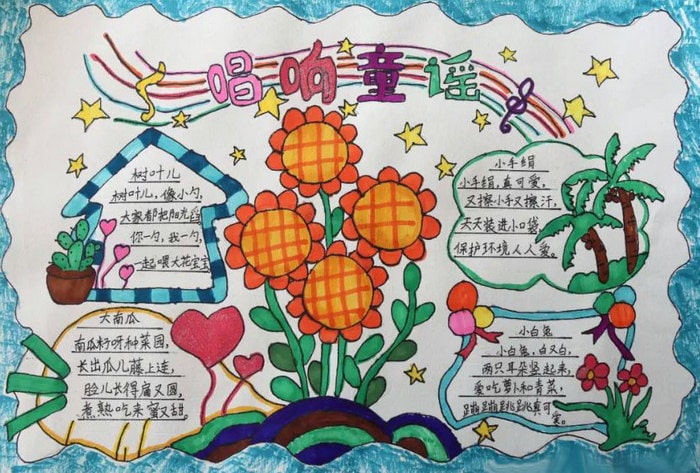 唱响童谣
树叶儿
树叶儿,像小勺,
大家都把阳光舀
你一勺,我一勺,
一起喂大花宝宝
小手绢
小手绢,真可爱,
又擦小手又擦汗,
天天装进小口袋
保护环境人人爱。
大南瓜
南瓜籽呀种菜园,
长出瓜儿藤上连,
脸儿长得扁又圆,
煮熟吃来蜜又甜.
小白兔
小白兔,白又白,
两只耳朵竖起来,
爱吃萝卜和青菜,
蹦蹦跳跳真可
爱。